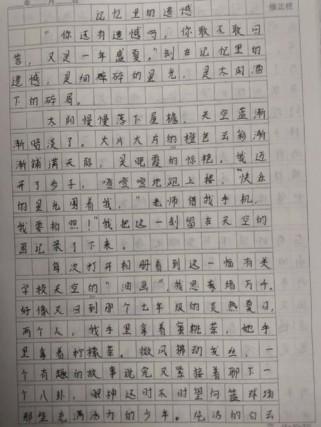 记忆里的遗憾
"你还有遗憾吗,你敢不敢回
答,又是一年盛夏。"刻在记忆里的
遗憾,是细碎碎的星光,是太阳洒
下的碎屑。
太阳慢慢落下屋檐,天空蓝渐
渐暗淡了。大片大片的橙色云彩渐
渐铺满天际,是晚霞的惊艳。我迈
开了步子,噔噔噔地跑上楼,"快乐
的星光围着我,"老师借我手机,
我要拍照!"我把这一刻留在天空的
画记录了下来。
每次打开相册看到这一幅有关
学校天空的"油画"我思绪万千,
好像又回到那个七年级的炎热夏日,
两个人,我手里拿着蜜桃茶,她手
里拿着柠檬茶。微风拂动发丝,一
个有趣的故事说完又紧接着聊下一
个八卦,眼神还时不时望向篮球场
那些充满活力的少年。 的白云